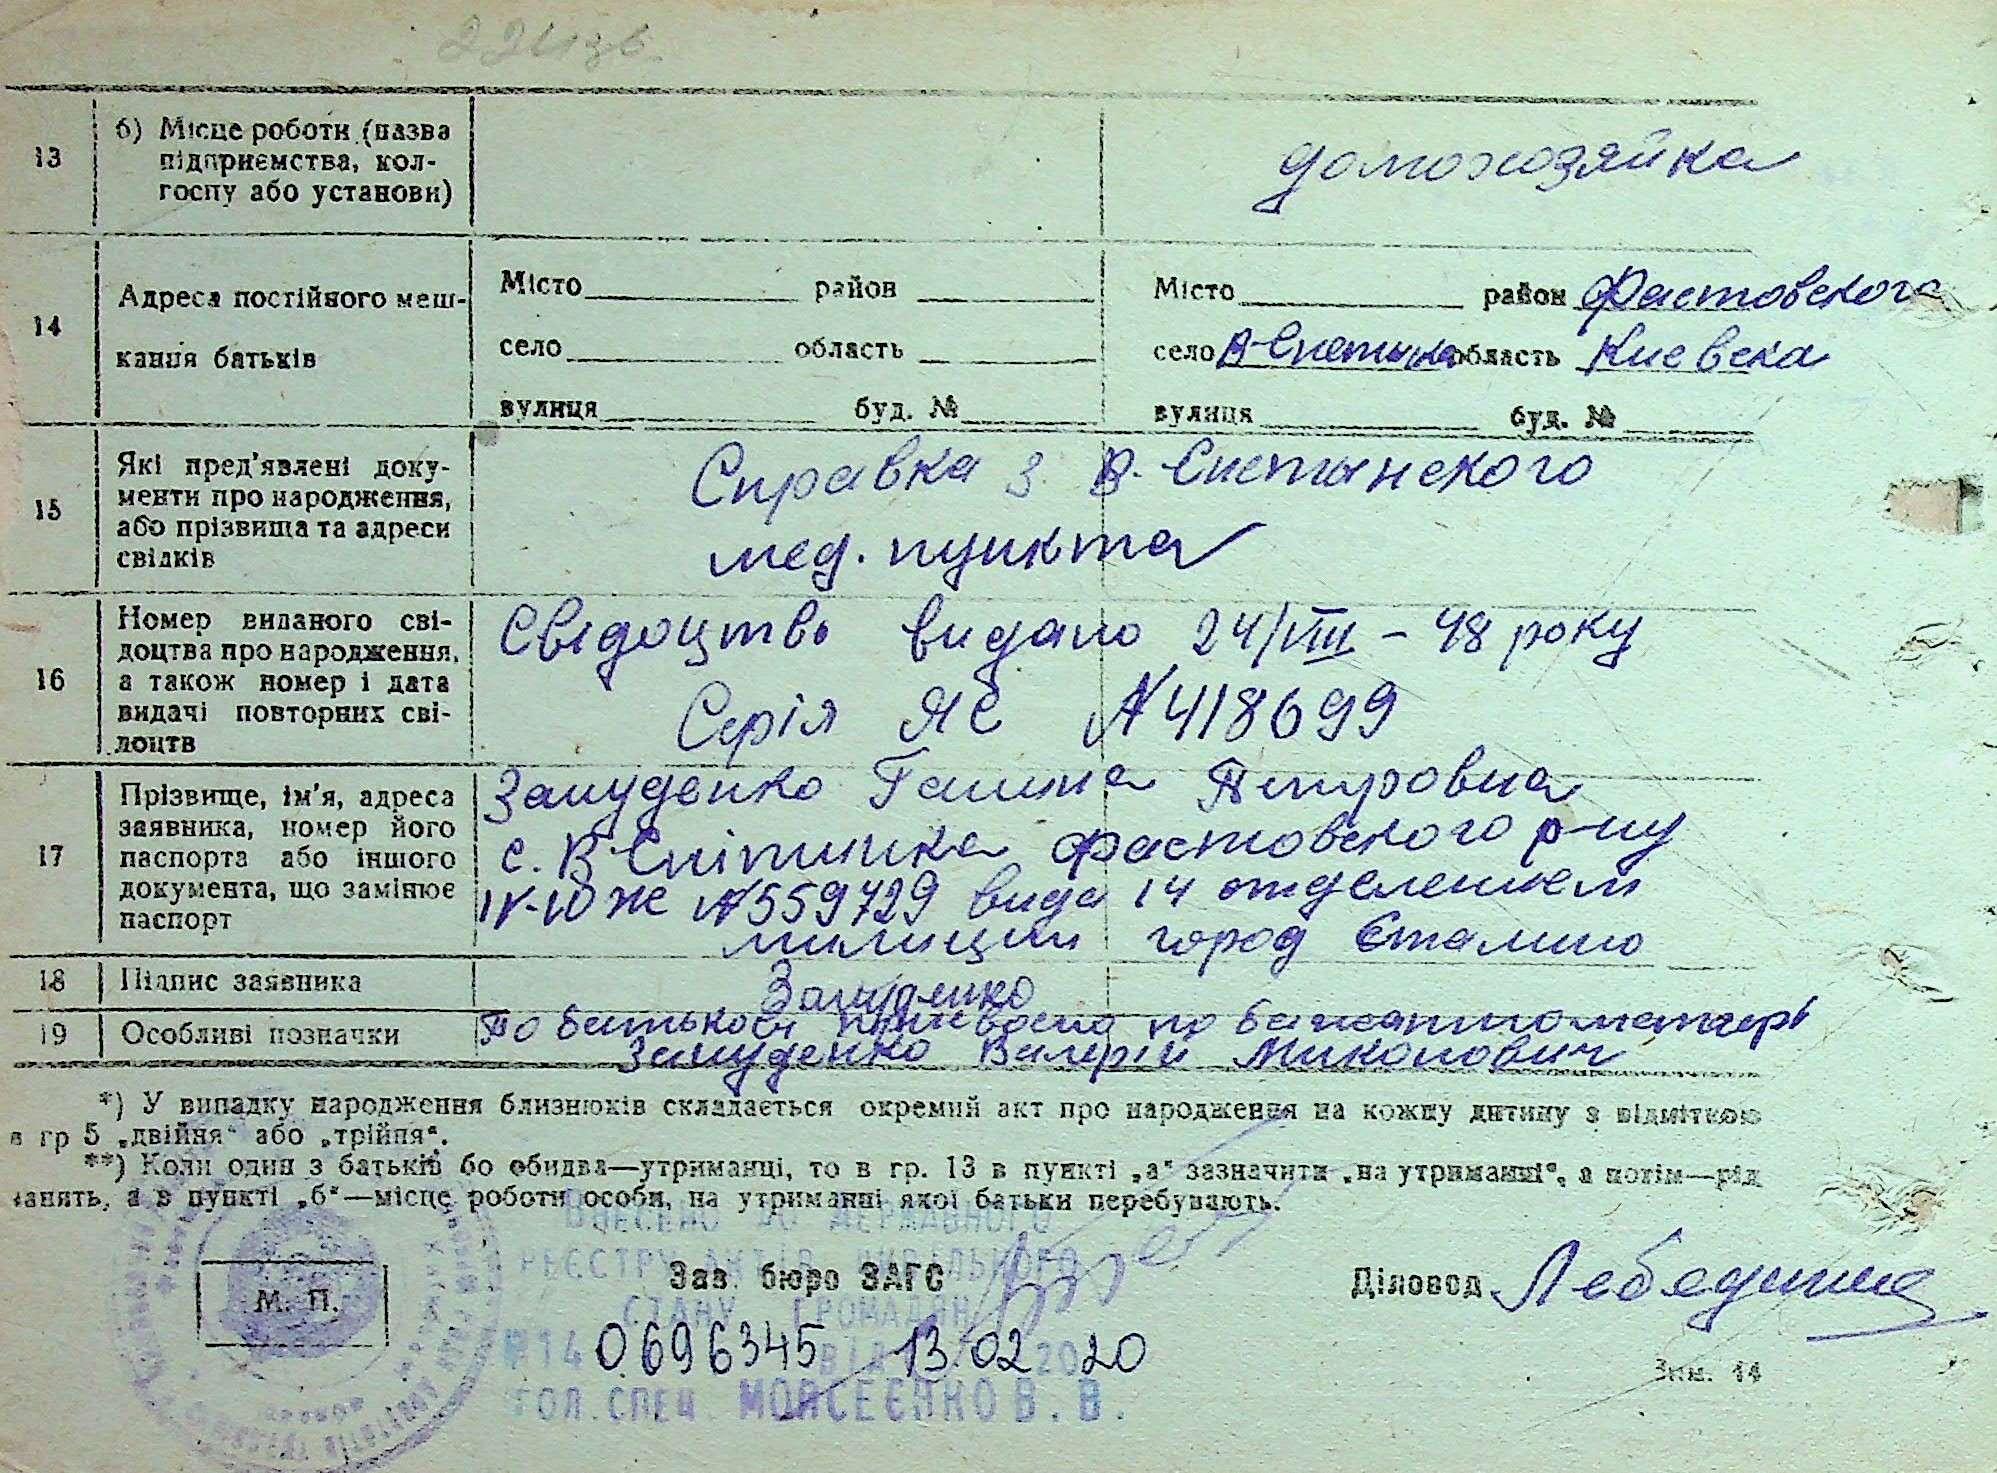 13
б) Місце роботи (назва
підприємства, кол-
госпу або установи)
домохозяйка
14
Адреса постійного меш-
кання батьків
Місто район
село область
вулиця буд. №
Місто район Фастовского
село В-Снетинка область Киевска
вулиця буд. №
15
Які пред'явлені доку-
менти про народження,
або прізвища та адреси
свідків
Справка з В. Снетынского
мед. пункта
16
Номер виданого сві-
доцтва про народження,
а також номер і дата
видачі повторних сві-
доцтв
Свідоцтво видано 24/VIII - 48 року
Серія ЯС N 418699
17
Прізвище, ім'я, адреса
заявника, номер його
паспорта або іншого
документа, що замінює
паспорт
Замуденко Галина Петровна
с. В Снітинка Фастовского р-ну
IV-ЮЖ N 559729 вида 14 отделением
милиции город Сталино
18
Підпис заявника
Замуденко
19
Особливі позначки
По батькові присвоено по бажанню матері
Замуденко Валерій Миколович
*) У випадку народження близнюків складається окремий акт про народження на кожну дитину з відміткою
в гр 5 „двійня“ або „трійня“.
**) Коли один з батьків бо обидва—утриманці, то в гр. 13 в пункті „а“ зазначити „на утриманні“, а потім—рід
занять, а в пункті „б“—місце роботи особи, на утриманні якої батьки перебувають.
ВНЕСЕНО ДО ДЕРЖАВНОГО
РЕЄСТРУ АКТІВ ЦИВІЛЬНОГО
СТАНУ ГРОМАДЯН
М. П.
Зав. бюро ЗАГС
Діловод Лебедина
№14 0696345 від 13.02 2020
ГОЛ. СПЕЦ. МОЙСЕЄНКО В. В.
Зам. 44